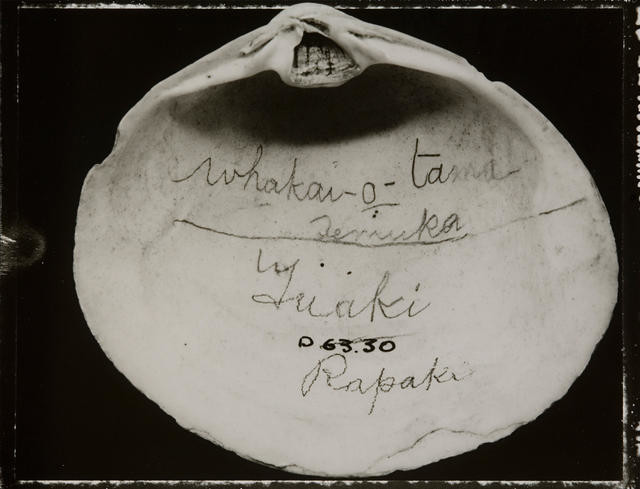 Whakai-o-tama
Temuka
Tuaki
D 63.30
Rapaki